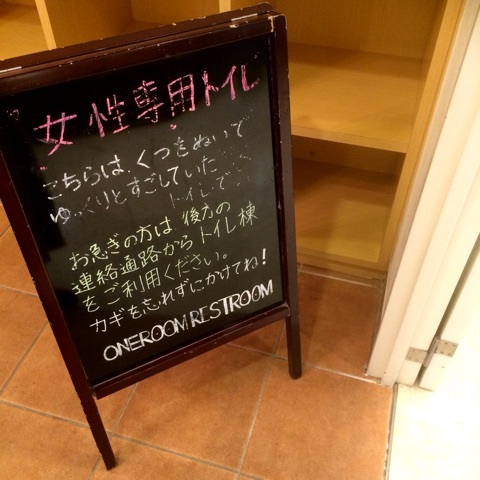 女性専用トイレ
こちらは くつをぬいで
ゆっくりとすごしていた
トイレで
お急ぎの方は 後方の
連絡通路から トイレ棟
をご利用ください。
カギを忘れずにかけてね!
ONEROOM RESTROOM